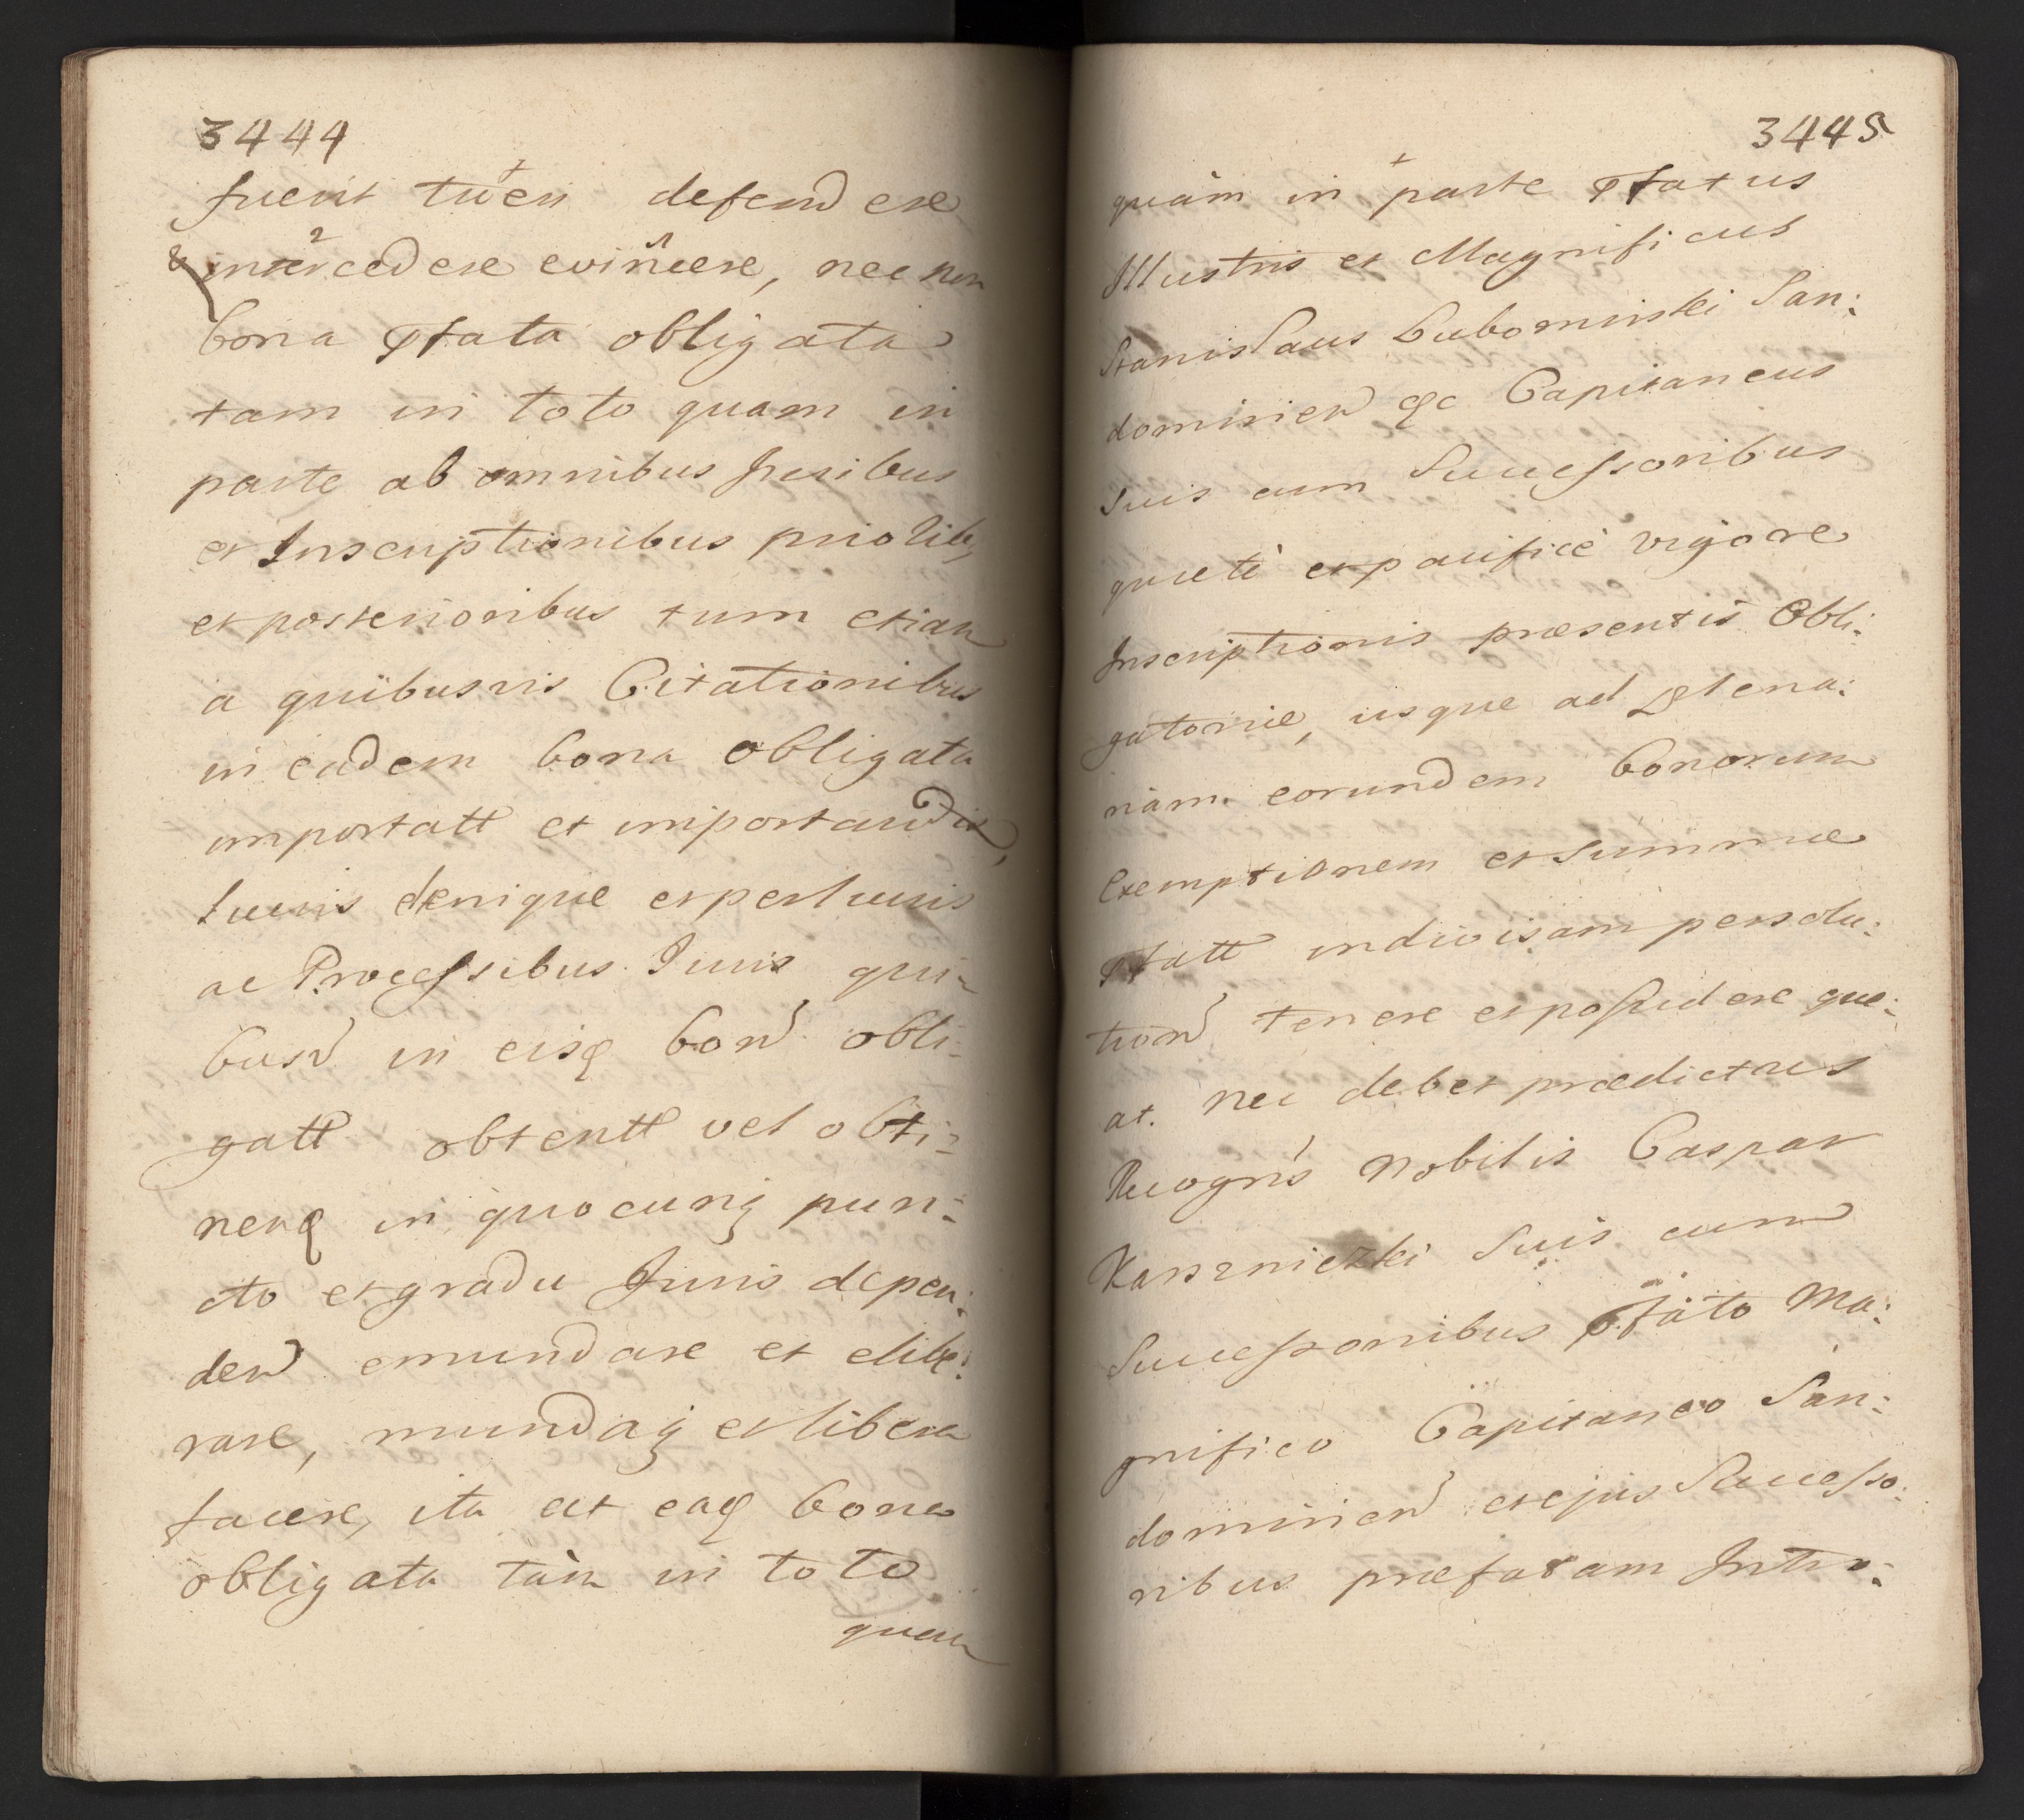 3444
fuerit tueri defendere
& intercedere evincere, nec non
bona pfata obligata
tam in toto quam in
parte ab omnibus Juribus
et Inscriptionibus priorib9
et posterioribus tum etiam
a quibusvis Citationibus
in eadem bona obligata
importatt et importandis,
lucris denique et perlucris
ac Processibus Juris qui-
busd in eisq bon obli-
gatt obtentt vel obti-
nenq in quocunq pun-
cto et gradu Juris depen-
den emundare et elibe-
rare, mundaq et libera
facere, ita ut eaq bona
obligata tàm in toto
quam
3445
quàm in parte pfatus
Illustris et Magnificus
Stanislaus Lubomirski San:
domirien &c Capitaneus
suis cum Successoribus
quietè et pacificè vigore
Inscriptionis præsentis Obli:
gatoriæ, usque ad plena:
riam eorundem bonorum
Exemptionem et summæ
pfatt indivisam persolu:
tion tenere et possidere que:
at. Nec debet prædictus
Recogn's Nobilis Caspar
Karszniczki suis cum
Successoribus pfato Ma:
gnifico Capitaneo San:
domirien et ejus Successo:
ribus præfatam Intro: